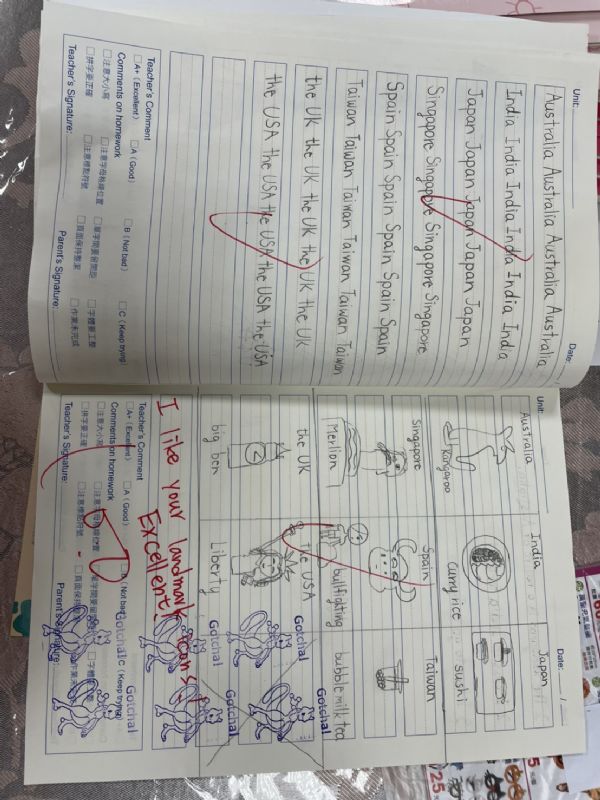 Unit:
Date: /
Australia Australia Australia Australia
India India India India India India
Japan Japan Japan Japan Japan
Singapore Singapore Singapore Singapore
Spain Spain Spain Spain Spain Spain
Taiwan Taiwan Taiwan Taiwan Taiwan
the UK the UK the UK the UK the UK
the USA the USA the USA the USA
Teacher's Comment
□A+ (Excellent) □A (Good) □B (Not bad) □C (Keep trying)
Comments on homework
□注意大小寫 □注意字母格線位置 □單字間要留間距 □字體要工整
□拼字要正確 □注意標點符號 □頁面保持整潔 □作業未完成
Teacher's Signature: Parent's Signature:
Unit:
Date: /
Australia India Japan
Kangaroo curry rice sushi
Singapore Spain Taiwan
Merlion bullfighting bubble milk tea
the UK the USA
big ben Liberty
I like your landmark
Excellent!
Gotcha!
Gotcha!
Gotcha!
Gotcha!
Teacher's Comment
□A+ (Excellent) □A (Good) □B (Not bad) □C (Keep trying)
Comments on homework
□注意大小寫 □注意字母格線位置 □單字間要留間距 □字體
□拼字要正確 □注意標點符號 □頁面保持
Teacher's Signature: Parent's Signature: